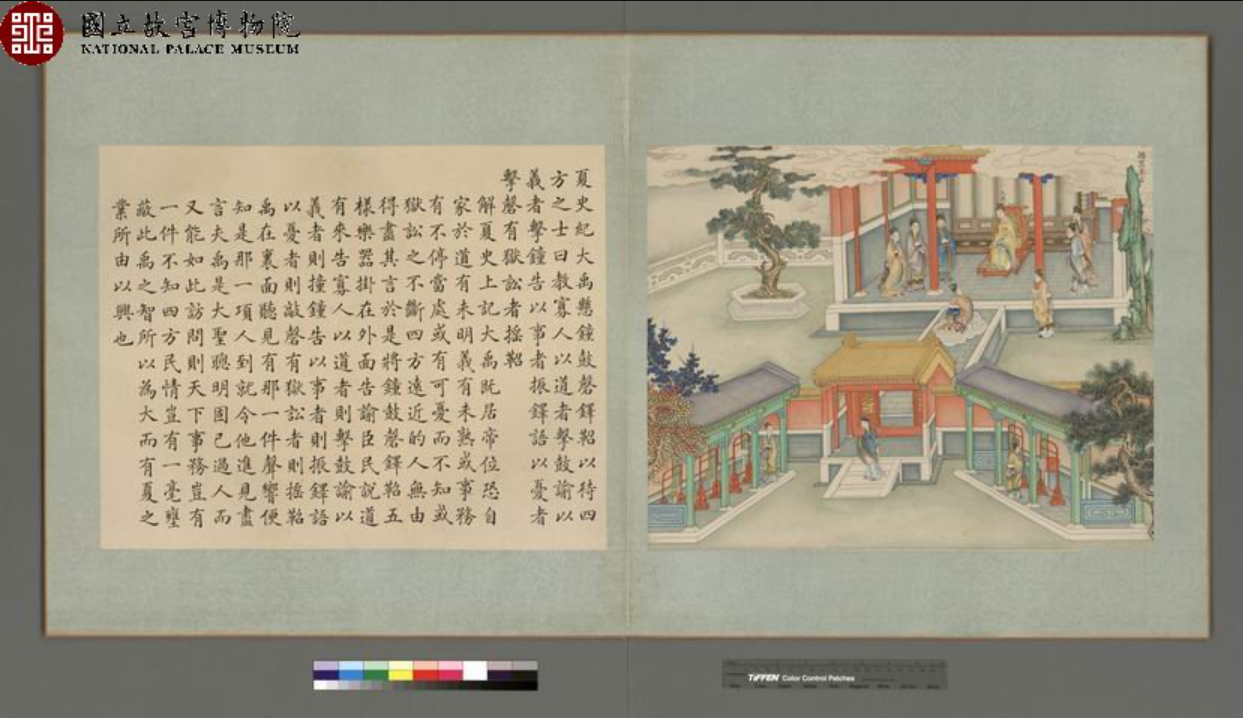 國立故宮博物院
NATIONAL PALACE MUSEUM
夏史紀大禹懸鐘鼓磬鐸鞀以待四
方之士曰教寡人以道者擊鼓諭以
義者擊鐘告以事者振鐸語以憂者
擊磬有獄訟者搖鞀
解夏史上記大禹既居帝位恐自
家於道有未明義有未熟或事務
有不停當處或有可憂而不知或
獄訟之不斷四方遠近的人無由
得盡其言於是將鐘鼓磬鐸鞀五
樣樂器掛在外面告諭臣民說道
有來告寡人以道者則擊鼓諭以
義者則撞鐘告以事者則振鐸語
以憂者則敲磬有獄訟者則搖鞀
禹在裏面聽見有那一件聲響便
知是那一項人到就令他進見盡
言夫禹是大聖聰明固已過人而
又能如此訪問則天下事務豈有
一件不知四方民情豈有一毫壅
蔽此禹之智所以為大而有夏之
業所由以興也
TIFFEN Color Control Patches